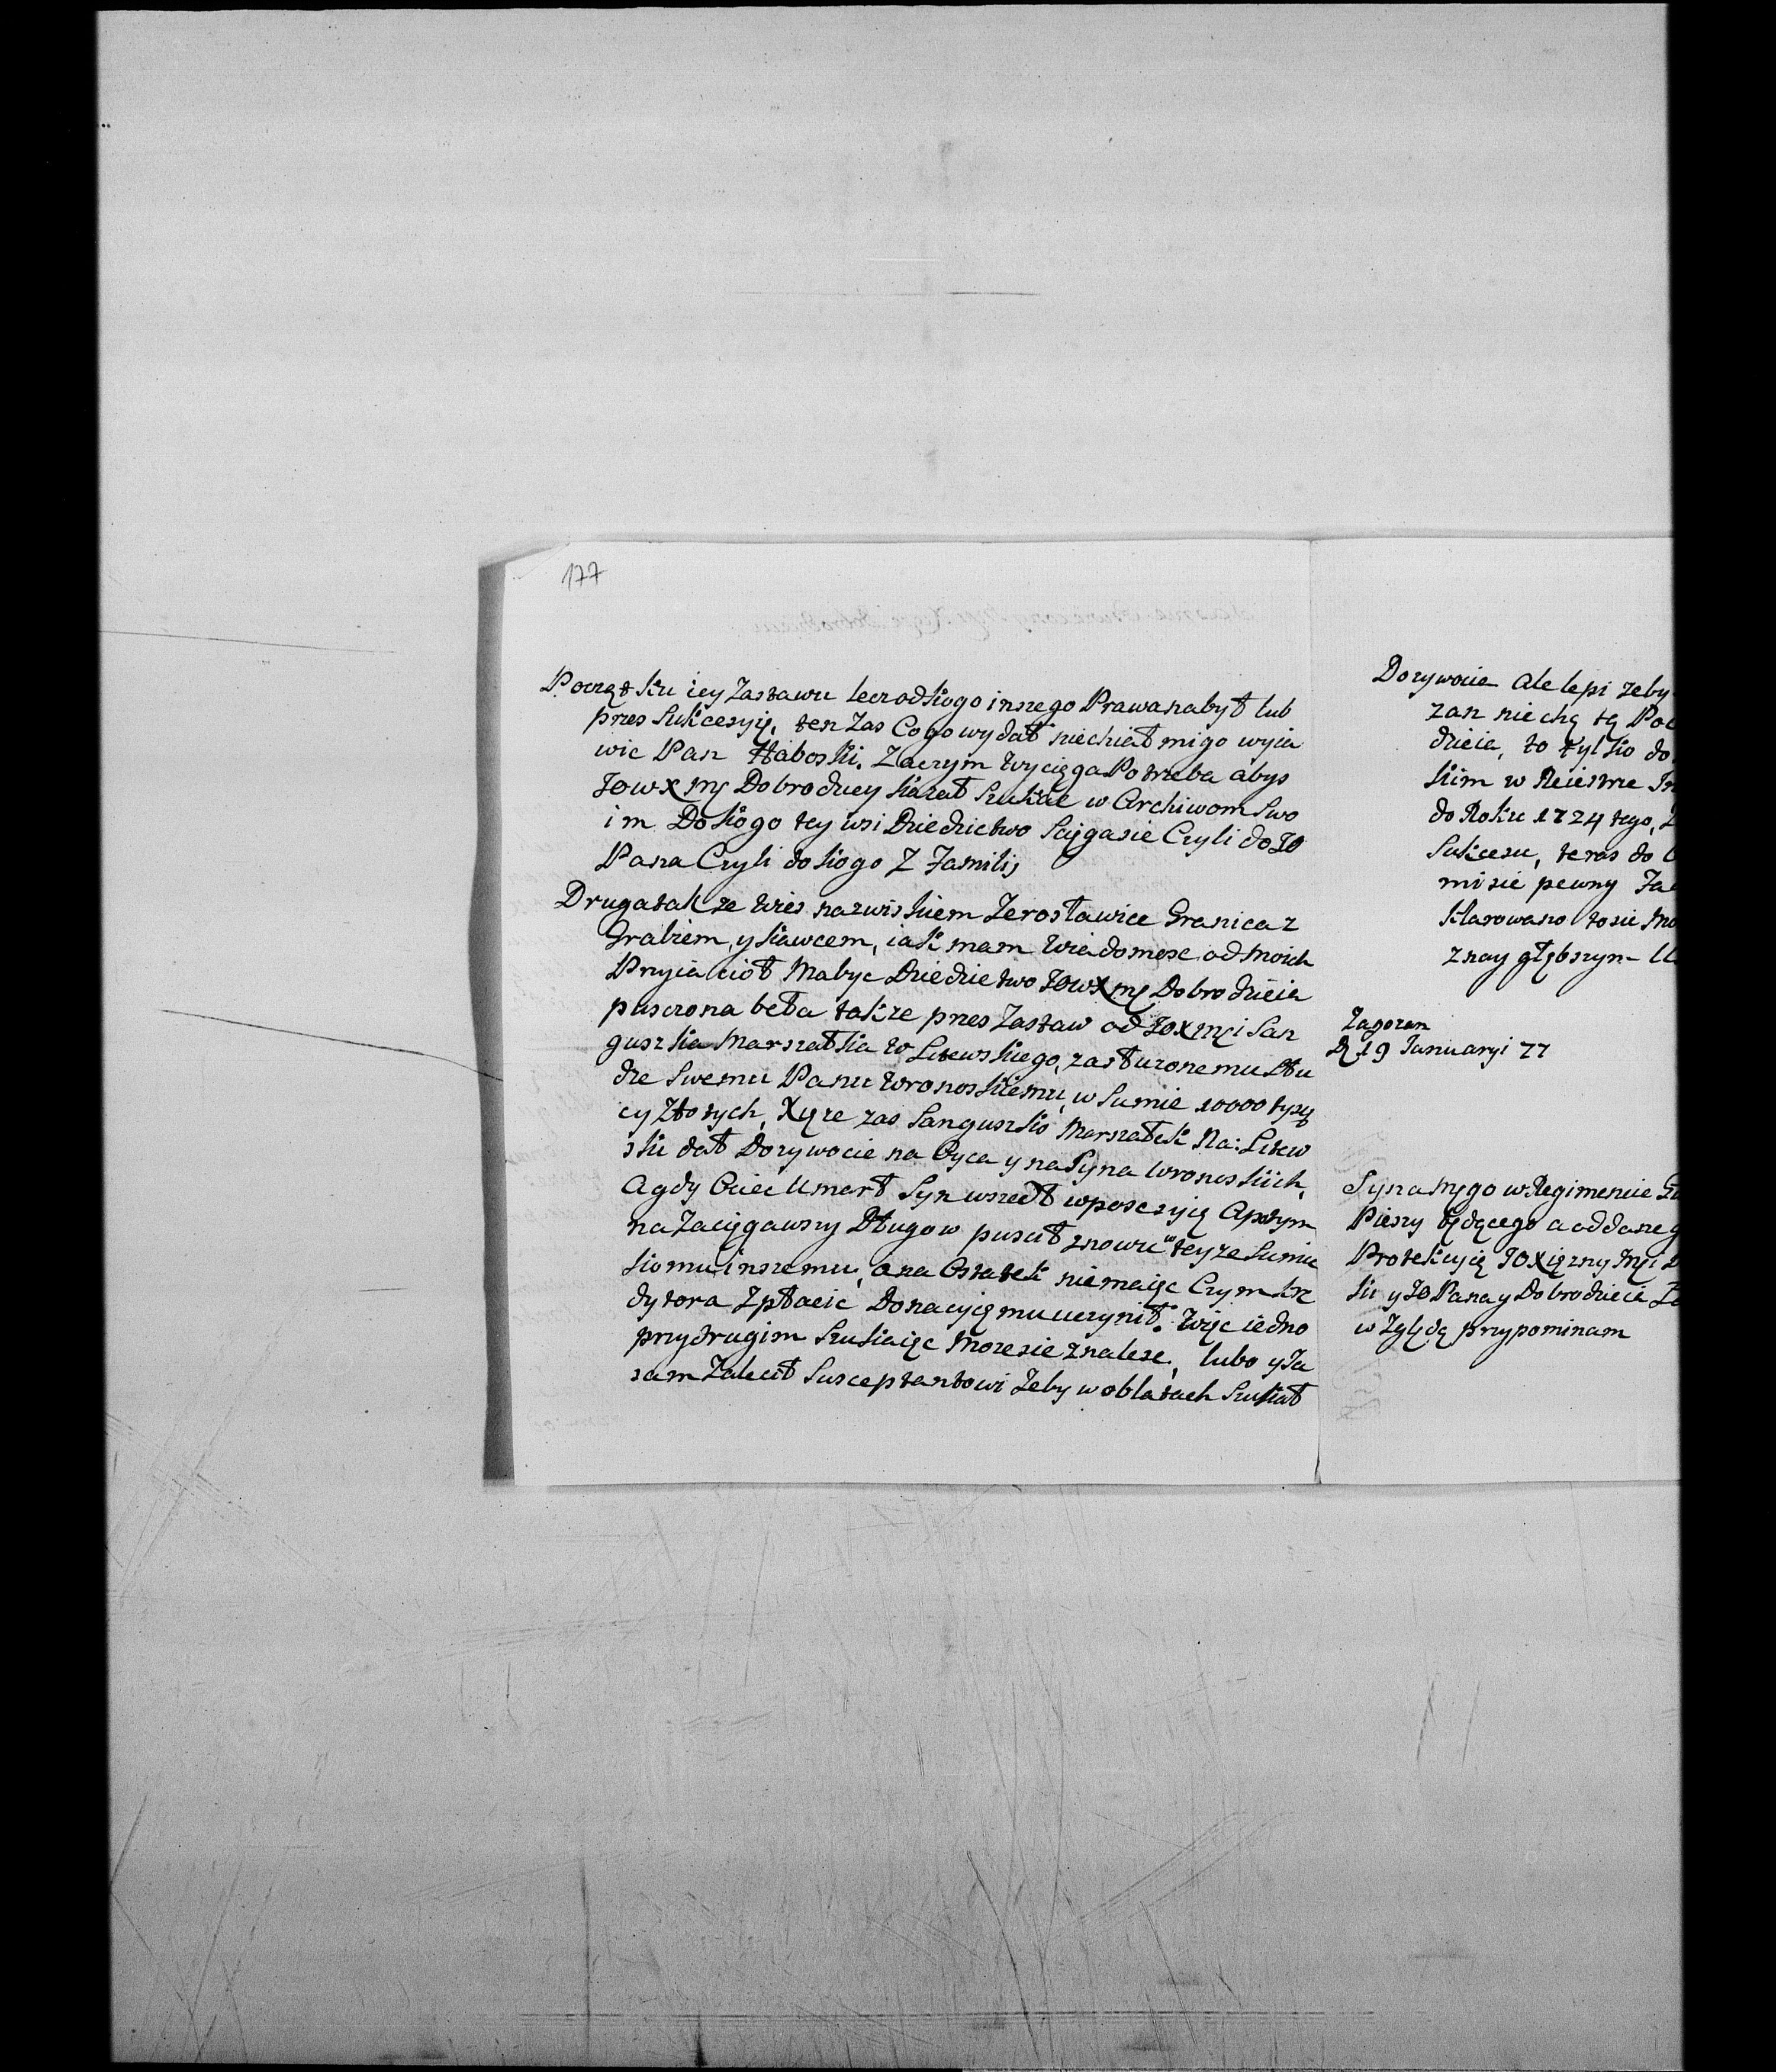 177
Początku iey Zastawu lecz od kogo inszego Prawa nabył lub
przes Sukcesyią, ten zas Co go wydał niechiał mi go wyia
wic Pan Haboski. Zaczym Wyciąga Potrzeba abys
JOWX Mć Dobrodziey kazał Szukac w Archiwom Swo
im Do kogo tey wsi Dziedzictwo Sciągasie Czyli do JO
Pana Czyli do kogo Z Familij
Druga takze Wies nazwiskiem Zerosławice Granica z
Grabiem, y kawcem, iak mam Wiadomosc od Moich
Przyiaciół Mabyc Dziedzictwo JOWX Mć Dobrodzieia
pusczona beła takze przes Zastaw od JOX Mći San
guszka Marszałka W Litewskiego, zasłuzonemu Słu
dze Swemu Panu Wronoskiemu, w Sumie 10000 tysię
cy Złotych, Xąze zas Sanguszko Marszałek Na: Litew
ski dał Dozywocie na Oyca y na Syna Wronoskiich,
A gdy Ociec Umarł Syn wszedł w posesyią A potym
na Zaciągawszy Długow puscił znowu w teyze Sumie
komu inszemu, a na Ostatek niemaiąc Czym kre
dytora Zpłacic Donacyią mu uczynił. Więc iedno
przy drugim Szukaiąc Moze sie znalesc, lubo y Ja
sam Zalecił Susceptantowi Zeby w oblatach Szukał
Dozywocie Ale lepi zeby
zan niechą tą Poc
dzieia, to tylko do
kim w Reiestrze
do Roku 1724 tego,
Sukcesu, teras do
mi sie pewny
klarowano to sie Mo
z nay głębszym
Zagorzan
D 19 Januaryi 77
Syna Mego w Regimencie
Pieszy będącego a oddane g
Protekcyią JOXięzny Mći
ki y JO Pana y Dobrodzieia
w Zględą przypominam